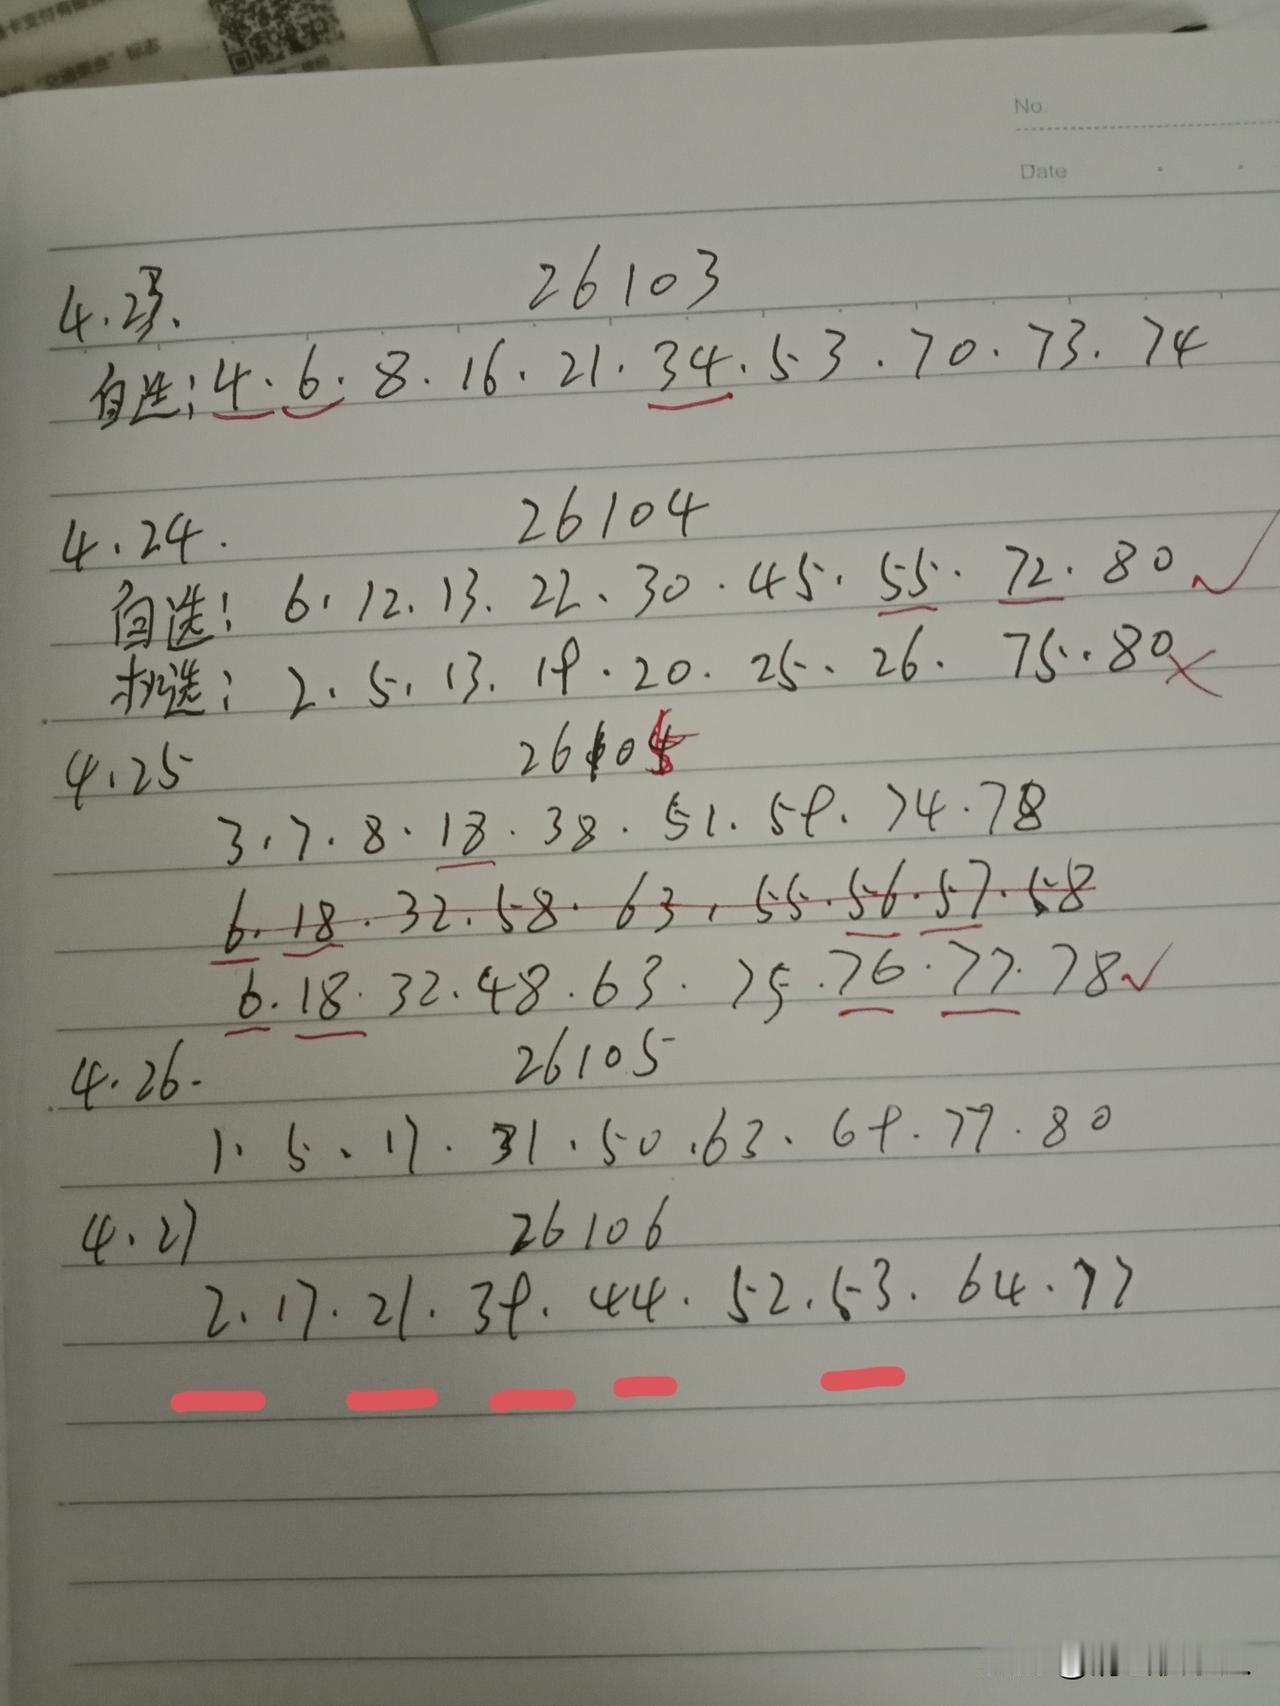 "交通联合"标志
No.
Date
4.23. 26103
自选:4.6.8.16.21.34.53.70.73.74
4.24. 26104
自选:6.12.13.22.30.45.55.72.80
机选:2.5.13.19.20.25.26.75.80
4.25 26105
3.7.8.18.38.51.59.74.78
6.18.32.58.63.55.56.57.58
6.18.32.48.63.75.76.77.78
4.26. 26105
1.5.17.31.50.63.69.77.80
4.27 26106
2.17.21.39.44.52.53.64.77